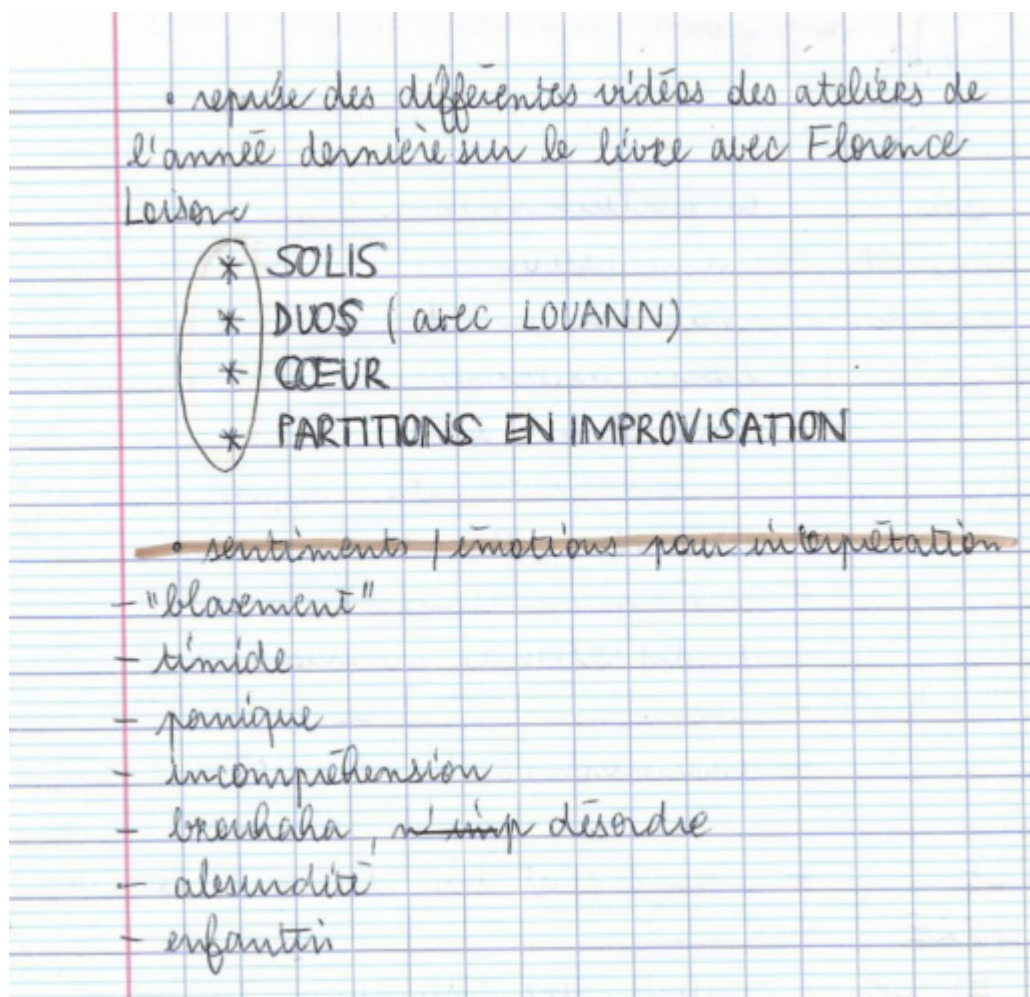 • reprise des différentes vidéos des ateliers de
l'année dernière sur le livre avec Florence
Loison
* SOLIS
* DUOS (avec LOUANN)
* CŒUR
* PARTITIONS EN IMPROVISATION
• sentiments / émotions pour interprétation
- "blasement"
- timide
- panique
- incompréhension
- brouhaha, n'imp désordre
- absurdité
- enfantin